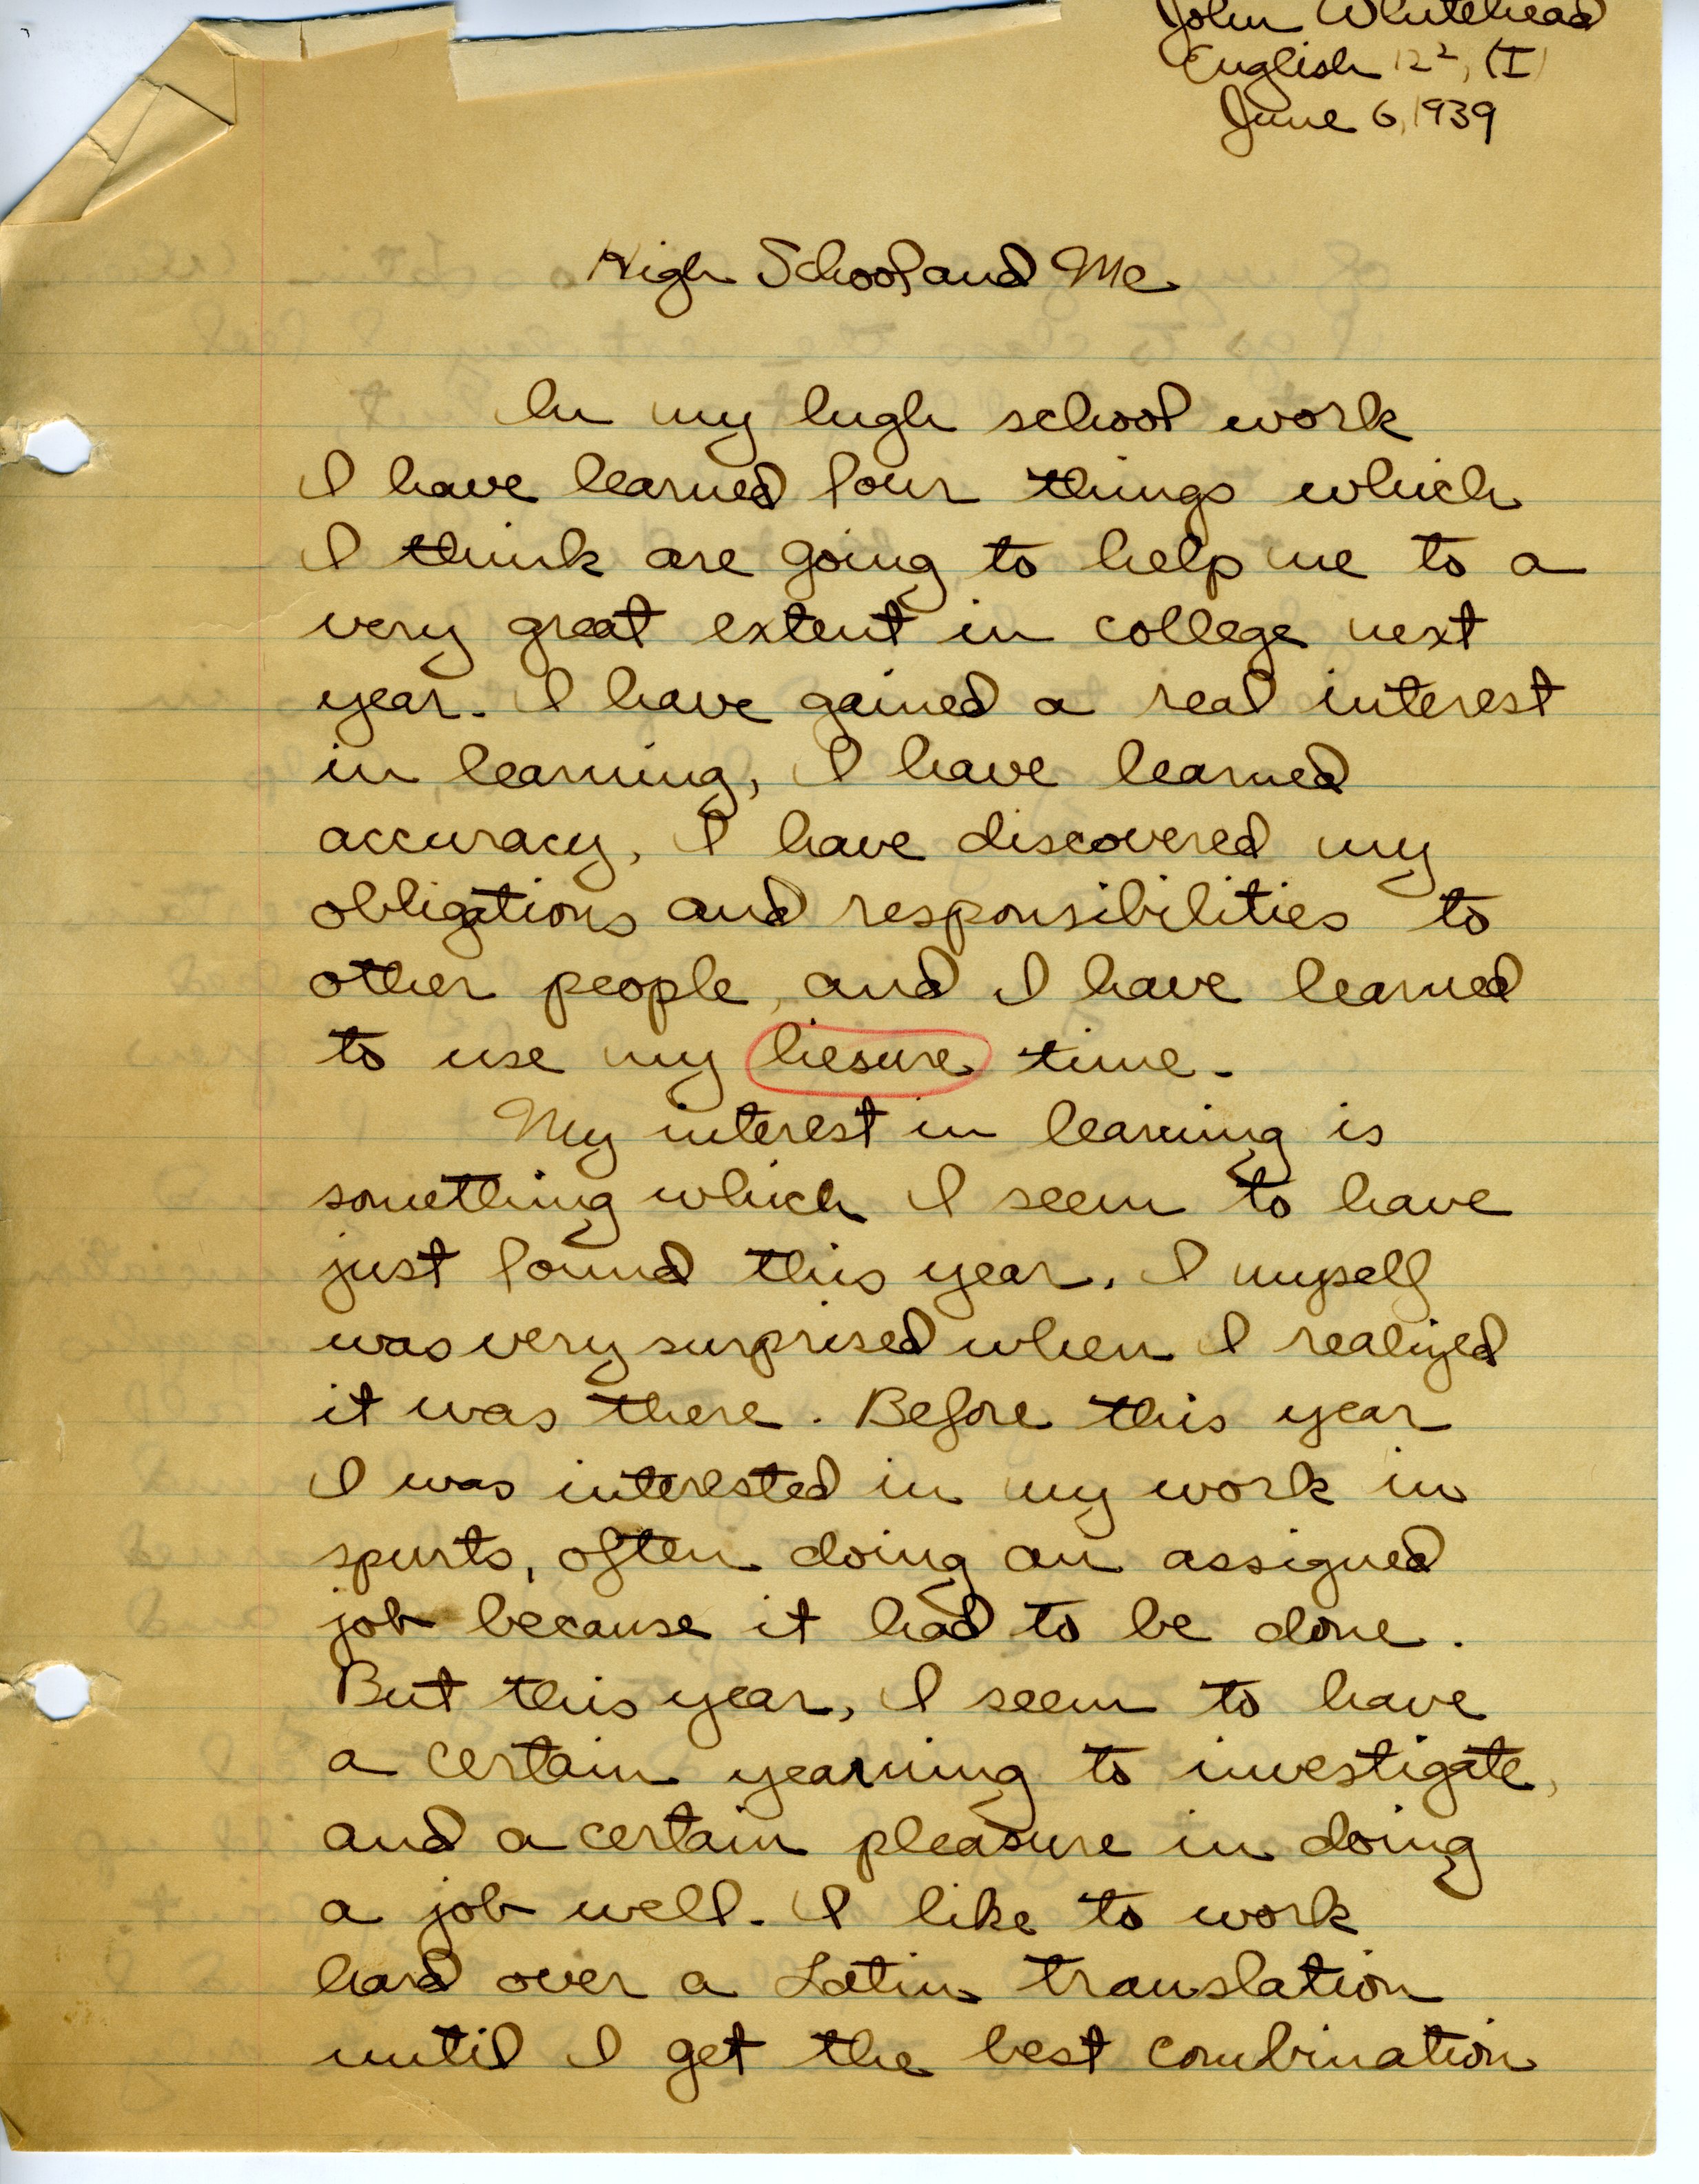 John Whitehead
English 12², (I)
June 6, 1939
High School and Me
In my high school work
I have learned four things which
I think are going to help me to a
very great extent in college next
year. I have gained a real interest
in learning, I have learned
accuracy, I have discovered my
obligations and responsibilities to
other people, and I have learned
to use my liesure time.
My interest in learning is
something which I seem to have
just found this year. I myself
was very surprised when I realized
it was there. Before this year
I was interested in my work in
spurts, often doing an assigned
job because it had to be done.
But this year, I seem to have
a certain yearning to investigate,
and a certain pleasure in doing
a job well. I like to work
hard over a Latin translation
until I get the best combination